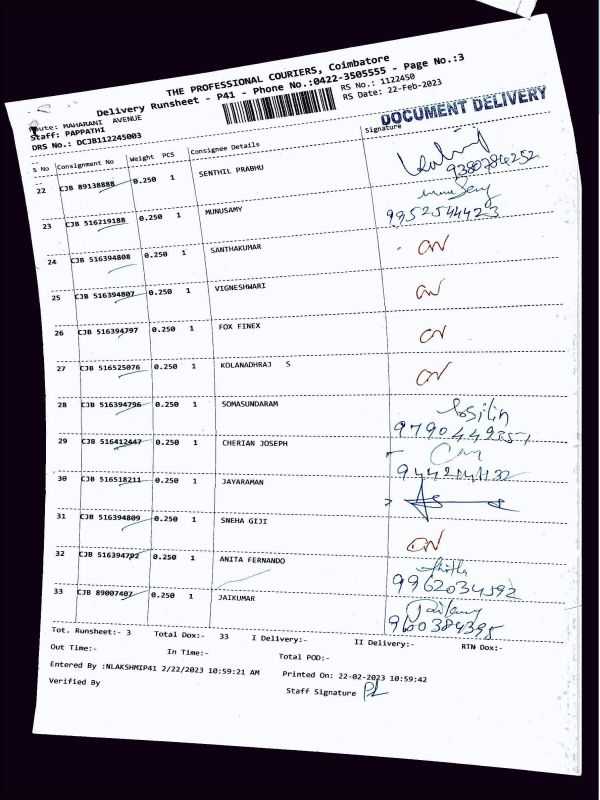 THE PROFESSIONAL COURIERS, Coimbatore
Delivery Runsheet - P41 - Phone No.:0422-3505555 - Page No.:3
Route: MAHARANI AVENUE
RS No.: 1122450
Staff: PAPPATHI
RS Date: 22-Feb-2023
DRS No.: DCJB112245003
DOCUMENT DELIVERY
S No Consignment No Weight PCS Consignee Details Signature
22 CJB 89138888 0.250 1 SENTHIL PRABHU
9380784252
23 CJB 516219188 0.250 1 MUNUSAMY
9952544423
24 CJB 516394808 0.250 1 SANTHAKUMAR
25 CJB 516394807 0.250 1 VIGNESHWARI
26 CJB 516394797 0.250 1 FOX FINEX
27 CJB 516525076 0.250 1 KOLANADHRAJ S
28 CJB 516394796 0.250 1 SOMASUNDARAM
29 CJB 516412447 0.250 1 CHERIAN JOSEPH
30 CJB 516518211 0.250 1 JAYARAMAN
31 CJB 516394809 0.250 1 SNEHA GIJI
32 CJB 516394792 0.250 1 ANITA FERNANDO
9962034592
33 CJB 89007407 0.250 1 JAIKUMAR
9600384395
Tot. Runsheet:- 3 Total Dox:- 33 I Delivery:- II Delivery:- RTN Dox:-
Out Time:- In Time:- Total POD:-
Entered By :NLAKSHMIP41 2/22/2023 10:59:21 AM Printed On: 22-02-2023 10:59:42
Verified By Staff Signature